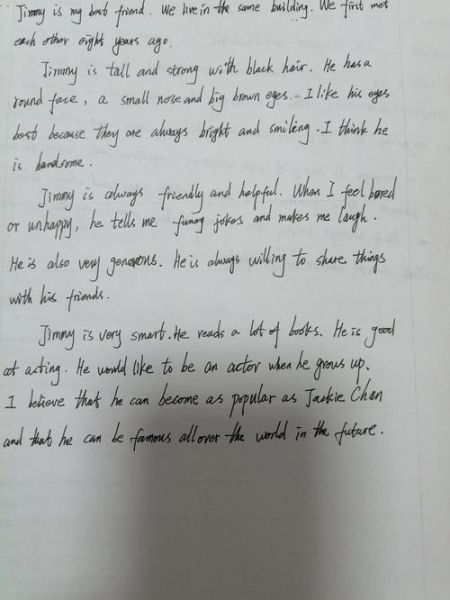 Jimmy is my best friend. We live in the same building. We first met
each other eight years ago.
Jimmy is tall and strong with black hair. He has a
round face, a small nose and big brown eyes. I like his eyes
best because they are always bright and smiling. I think he
is handsome.
Jimmy is always friendly and helpful. When I feel bored
or unhappy, he tells me funny jokes and makes me laugh.
He is also very generous. He is always willing to share things
with his friends.
Jimmy is very smart. He reads a lot of books. He is good
at acting. He would like to be an actor when he grows up.
I believe that he can become as popular as Jackie Chan
and that he can be famous all over the world in the future.